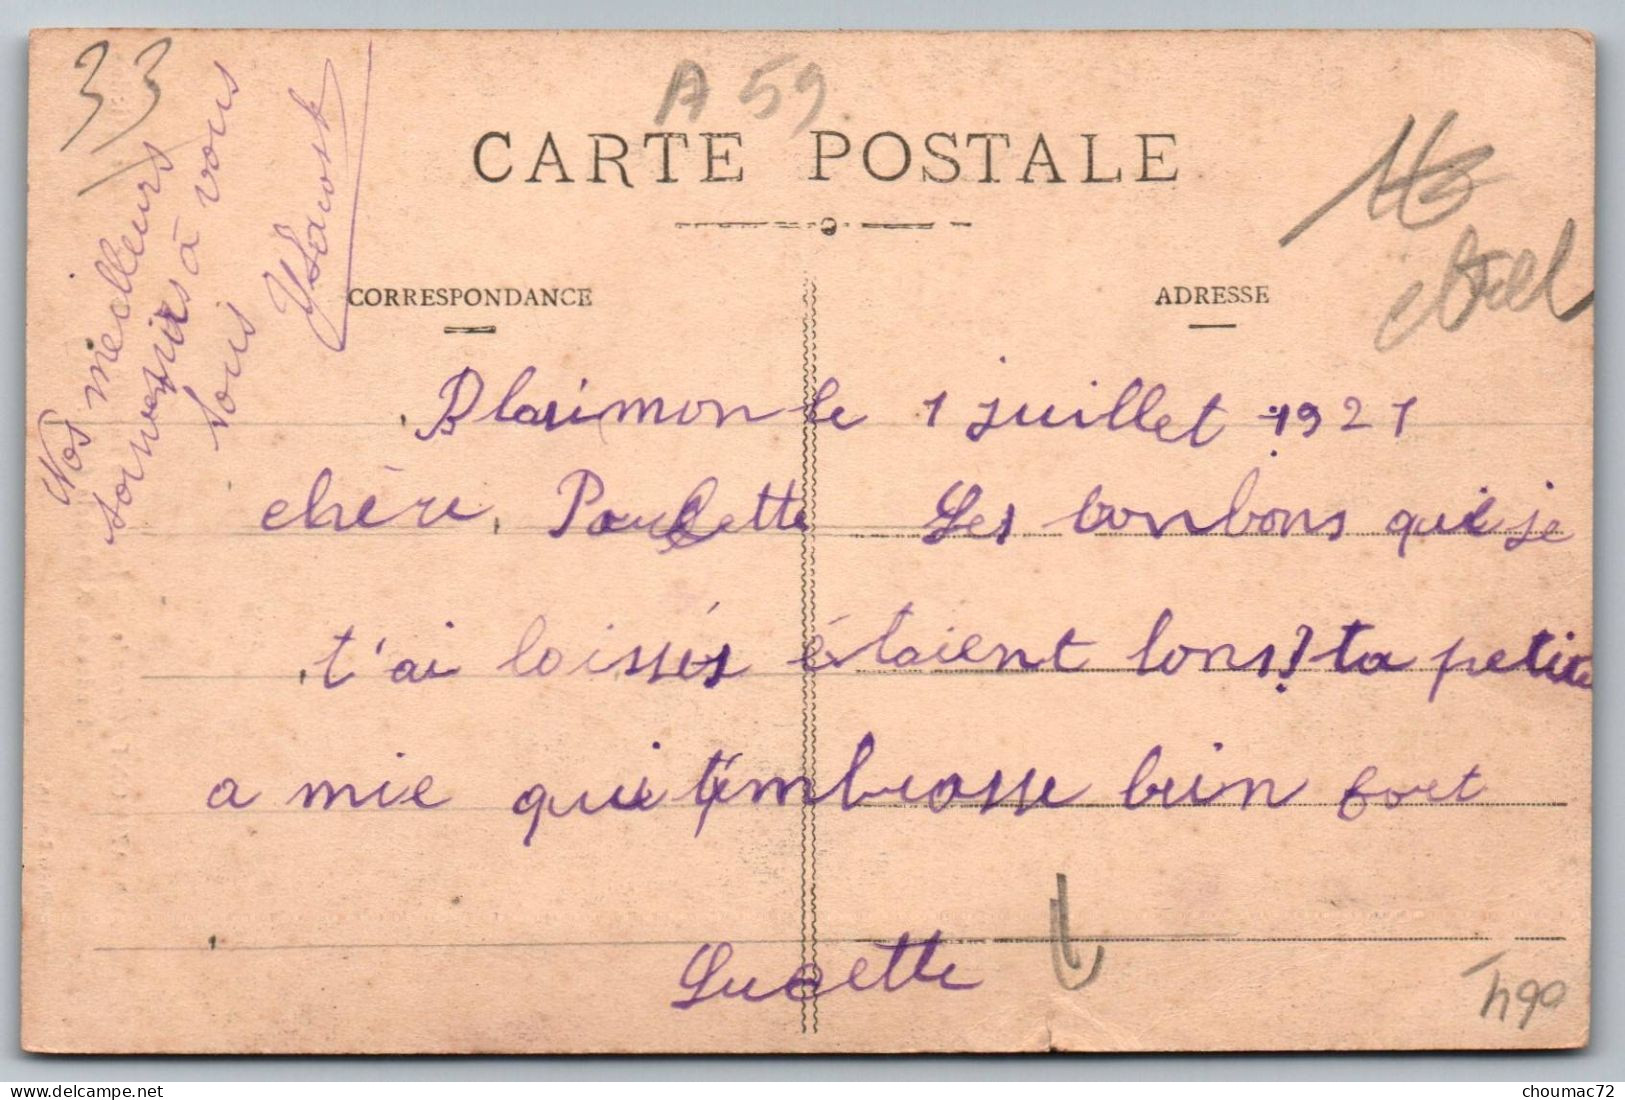 33
A 59
CARTE POSTALE
CORRESPONDANCE
ADRESSE
Nos meilleurs
souvenirs à vous
tous
YLacoste
Blasimon le 1 juillet 1921
chère Paulette Les bonbons que je
t'ai laissés étaient bons? ta petite
a mie qui t'embrasse bien fort
Lucette
choumac72